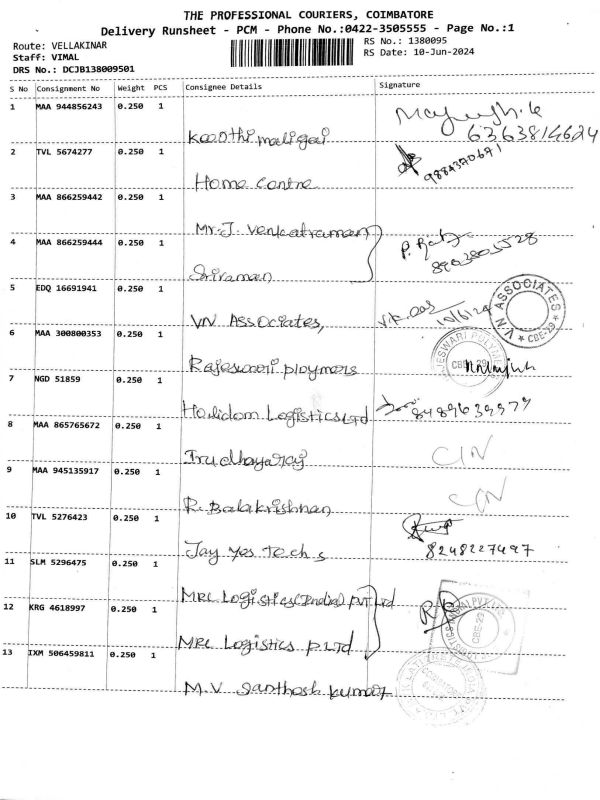 THE PROFESSIONAL COURIERS, COIMBATORE
Delivery Runsheet - PCM - Phone No.:0422-3505555 - Page No.:1
Route: VELLAKINAR
RS No.: 1380095
Staff: VIMAL
RS Date: 10-Jun-2024
DRS No.: DCJB138009501
S No Consignment No Weight PCS Consignee Details Signature
1 MAA 944856243 0.250 1
Keerthi maligai
6363814624
2 TVL 5674277 0.250 1
9884370671
Home centre
3 MAA 866259442 0.250 1
Mr. J. Venkatraman
4 MAA 866259444 0.250 1
8903805528
Sriraman
5 EDQ 16691941 0.250 1
VN Associates,
10/6/24
V.N. ASSOCIATES
CBE-29
6 MAA 300800353 0.250 1
Rajeswari ploymers
CBE-29
7 NGD 51859 0.250 1
Logistics LTD
8489639979
8 MAA 865765672 0.250 1
Irudhayaraj
9 MAA 945135917 0.250 1
R. Balakrishnan
10 TVL 5276423 0.250 1
Jay yes techs
8248227497
11 SLM 5296475 0.250 1
MRC Logistics (India) PVT Ltd
12 KRG 4618997 0.250 1
CBE-29
MRC Logistics P LTD
13 IXM 506459811 0.250 1
M.V Santhosh kumar